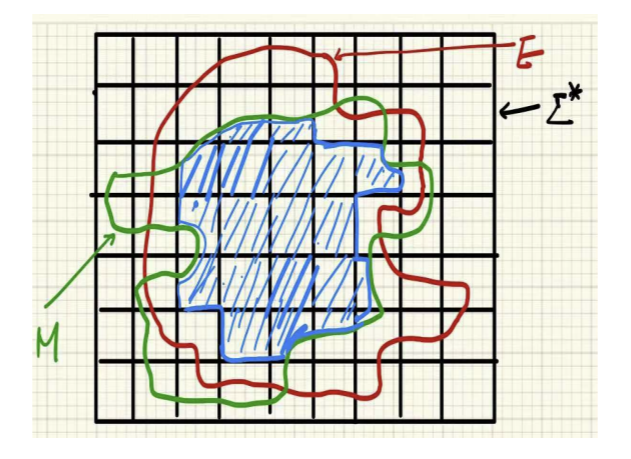 E
Σ*
M